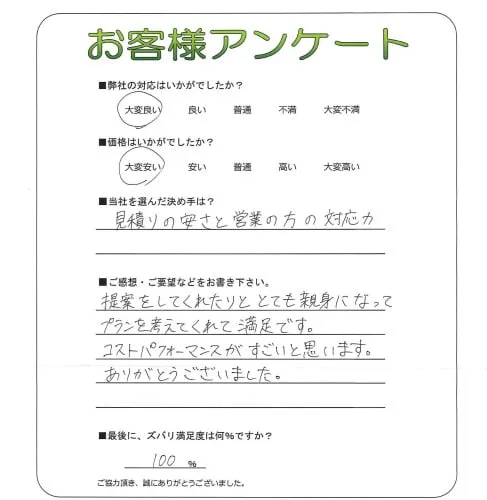 お客様アンケート
■弊社の対応はいかがでしたか?
大変良い 良い 普通 不満 大変不満
■価格はいかがでしたか?
大変安い 安い 普通 高い 大変高い
■当社を選んだ決め手は?
見積りの安さと営業の方の対応力
■ご感想・ご要望などをお書き下さい。
提案をしてくれたりと とても親身になって
プランを考えてくれて満足です。
コストパフォーマンスがすごいと思います。
ありがとうございました。
■最後に、ズバリ満足度は何%ですか?
100 %
ご協力頂き、誠にありがとうございました。